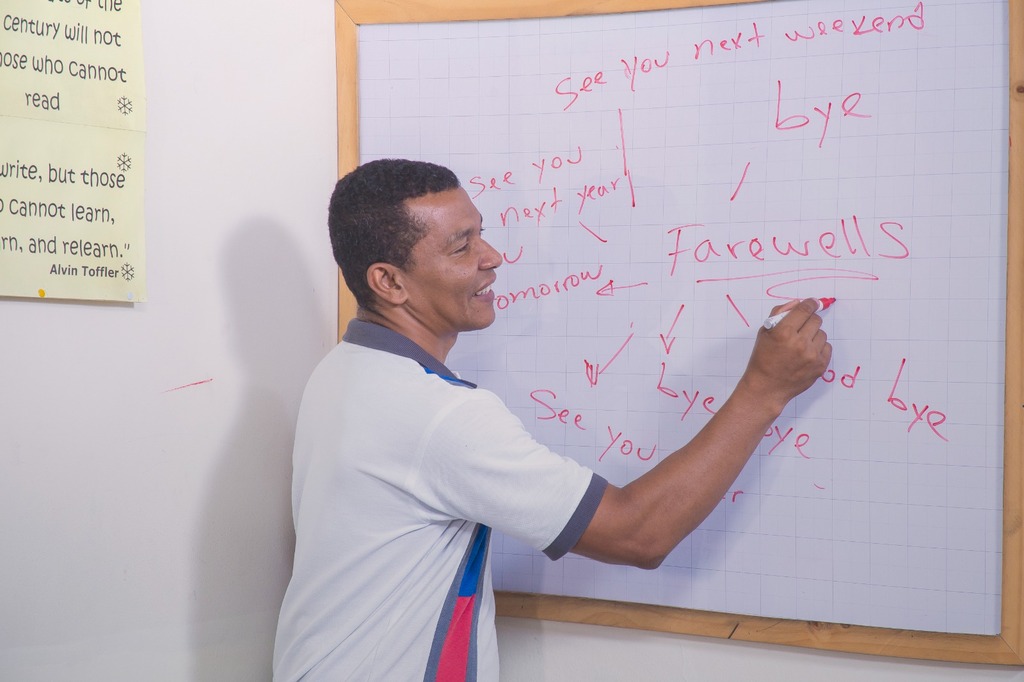 of the
century will not
who cannot
read
write, but those
cannot learn,
and relearn."
Alvin Toffler
See you next weekend
bye
See you
next year
Farewells
bye
See you
bye
bye